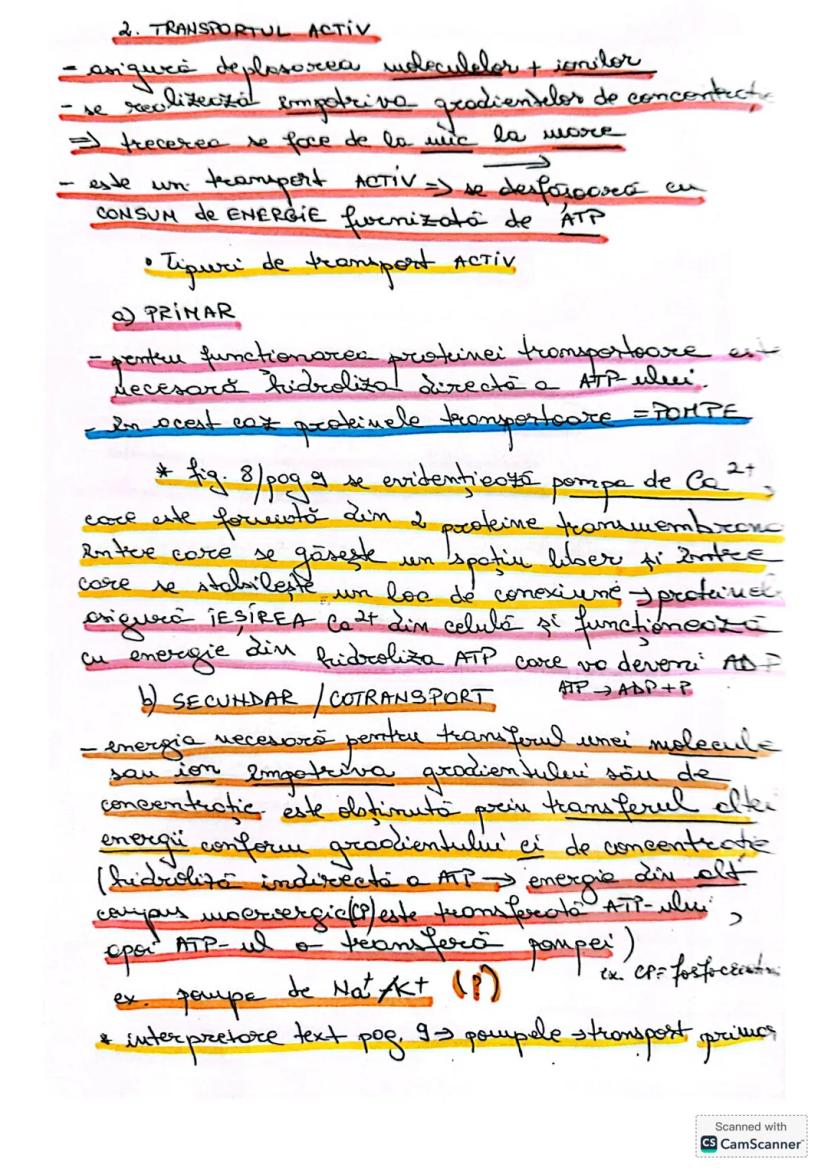 2. TRANSPORTUL ACTIV
- asigură deplasarea moleculelor + ionilor
- se realizează împotriva gradientelor de concentrație
=> trecerea se face de la mic la mare
- este un transport ACTIV => se desfășoară cu
CONSUM de ENERGIE furnizată de ATP
• Tipuri de transport ACTIV
a) PRIMAR
- pentru funcționarea proteinei transportoare este
necesară hidroliza directă a ATP-ului.
- în acest caz proteinele transportoare = POMPE
* fig. 8/pag 9 se evidențiează pompa de Ca2+,
care este formată din 2 proteine transmembrane
între care se găsește un spațiu liber și între
care se stabilește un loc de conexiune → proteinele
asigură IEȘIREA Ca2+ din celulă și funcționează
cu energie din hidroliza ATP care va deveni ADP
ATP → ADP + P
b) SECUNDAR / COTRANSPORT
- energia necesară pentru transferul unei molecule
sau ion împotriva gradientului său de
concentrație este obținută prin transferul altei
energii conform gradientului ei de concentrație
(hidroliză indirectă a ATP → energie din alt
compus macroergic (CP) este transferată ATP-ului,
apoi ATP-ul o transferă pompei)
ex. CP = fosfocreatină
ex. pompa de Na+/K+ (P)
* interpretare text pag. 9 => pompele → transport primar
Scanned with
CS CamScanner